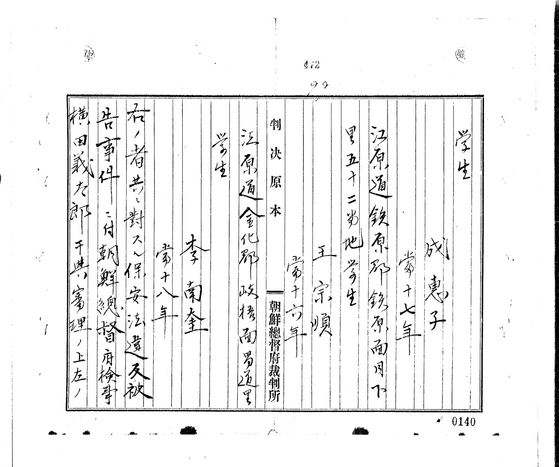 学生
成惠子
当十七年
江原道鉄原郡鉄原面月下
里五十二番地学生
王宗順
当十六年
判決原本
朝鮮總督府裁判所
江原道金化郡岐梧面蜀道里
学生
李南奎
当十八年
右ノ者共ニ對スル保安法違反被
告事件ニ付朝鮮總督府檢事
横田義太郎干與審理ノ上左ノ
0140